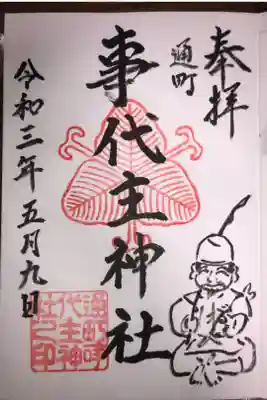 奉拝
通町
事代主神社
令和三年五月九日
通町
事代主神
社之印